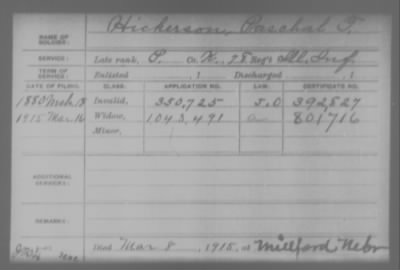 NAME OF SOLDIER: Hickerson, Paschal T.
SERVICE: Late rank, P. Co. K, 78 Reg't Ill. Inf.
TERM OF SERVICE: Enlisted , 1 Discharged , 1
DATE OF FILING. CLASS. APPLICATION NO. LAW. CERTIFICATE NO.
1880 Mch 18 Invalid, 350,725 392,827
1915 Mar. 16 Widow, 1043,491 801716
Minor,
ADDITIONAL SERVICES:
REMARKS:
Died Mar 8, 1915, at Millford Nebr